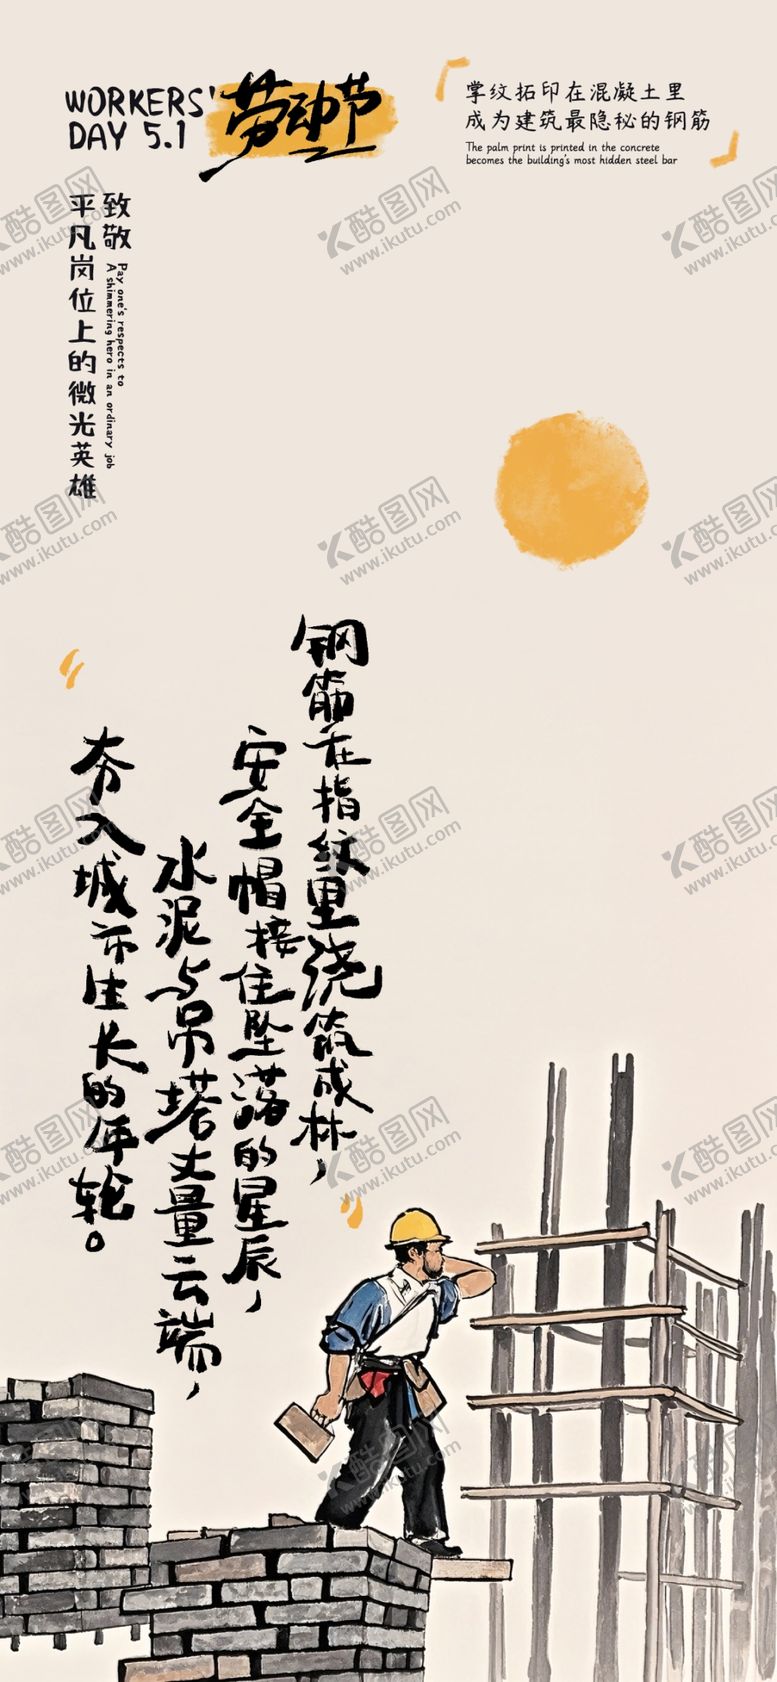 WORKERS'
DAY 5.1
劳动节
掌纹拓印在混凝土里
成为建筑最隐秘的钢筋
The palm print is printed in the concrete
becomes the building's most hidden steel bar
致敬
平凡岗位上的微光英雄
Pay one's respects to
A shimmering hero in an ordinary job
钢筋在指纹里绕筑成林，
安全帽接住坠落的星辰，
水泥与吊塔丈量云端，
夯入城市生长的年轮。
酷图网
www.ikutu.com